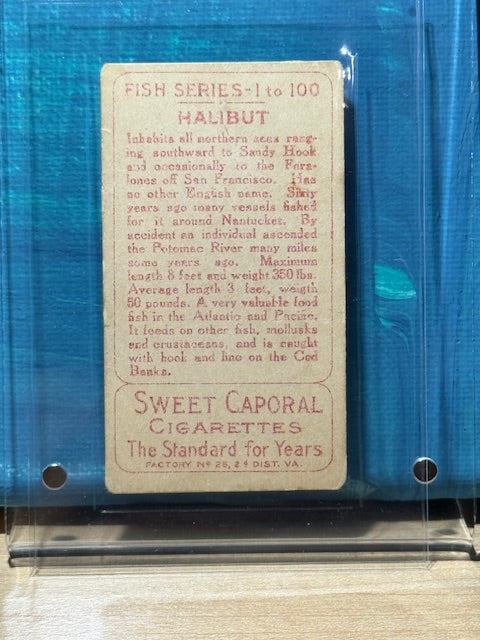 FISH SERIES-1 to 100
HALIBUT
Inhabits all northern seas rang-
ing southward to Sandy Hook
and occasionally to the Fara-
lones off San Francisco. Has
no other English name. Sixty
years ago many vessels fished
for it around Nantucket. By
accident an individual ascended
the Potomac River many miles
some years ago. Maximum
length 8 feet and weight 350 lbs.
Average length 3 feet, weigth
50 pounds. A very valuable food
fish in the Atlantic and Pacific.
It feeds on other fish, mollusks
and crustaceans, and is caught
with hook and line on the Cod
Banks.
SWEET CAPORAL
CIGARETTES
The Standard for Years
FACTORY No 25, 2d DIST. VA.